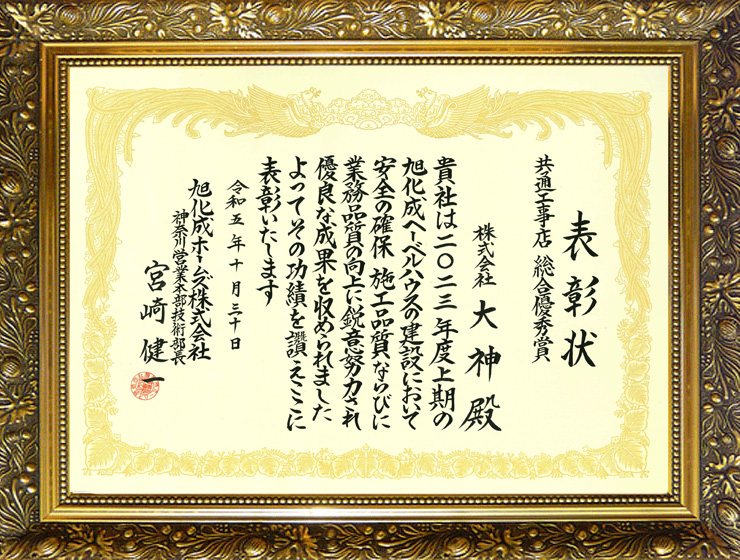 表彰状
共通工事店 総合優秀賞
株式会社 大神殿
貴社は二〇二三年度上期の
旭化成ヘーベルハウスの建設において
安全の確保 施工品質ならびに
業務品質の向上に鋭意努力され
優良な成果を収められました
よってその功績を讃えここに
表彰いたします
令和五年十月三十日
旭化成ホームズ株式会社
神奈川営業本部技術部長
宮崎健一